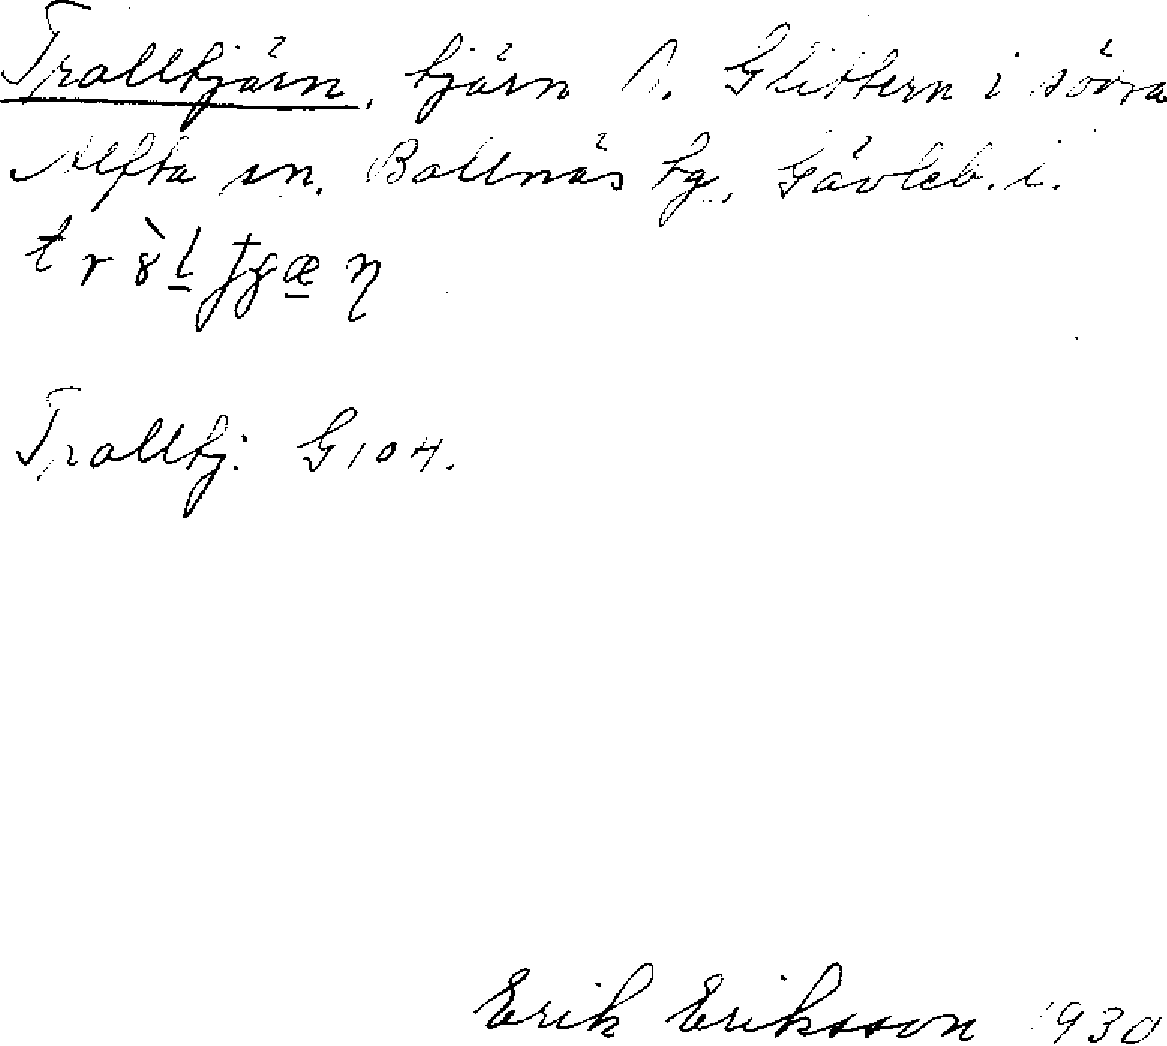 Trolltjärn, tjärn S. Glittern i södra
Alfta sn. Bollnäs tg. Gävleb. l.
Trolltj. G 104.
Erik Eriksson 1930